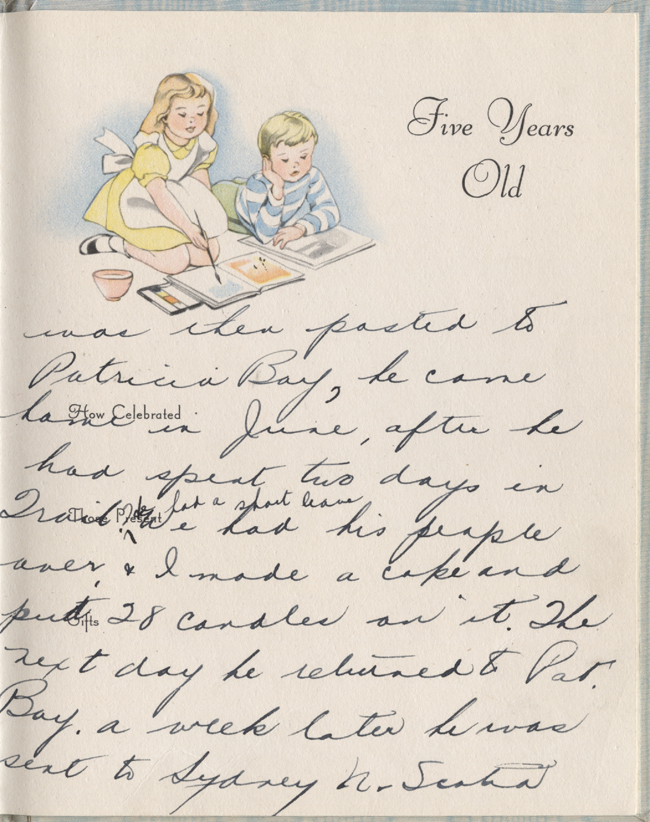 Five Years
Old
was then posted to
Patricia Bay, he came
How Celebrated
home in June, after he
had spent two days in
for a short leave
Those Present
Trail. We had his people
over, & I made a cake and
Gifts
put 28 candles on it. The
next day he returned to Pat.
Bay. a week later he was
sent to Sydney N. Scotia